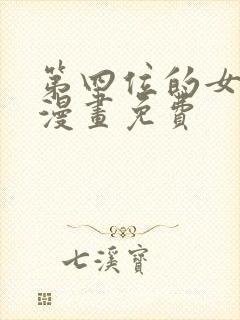 第四位的女
漫畫免費
七溪寶